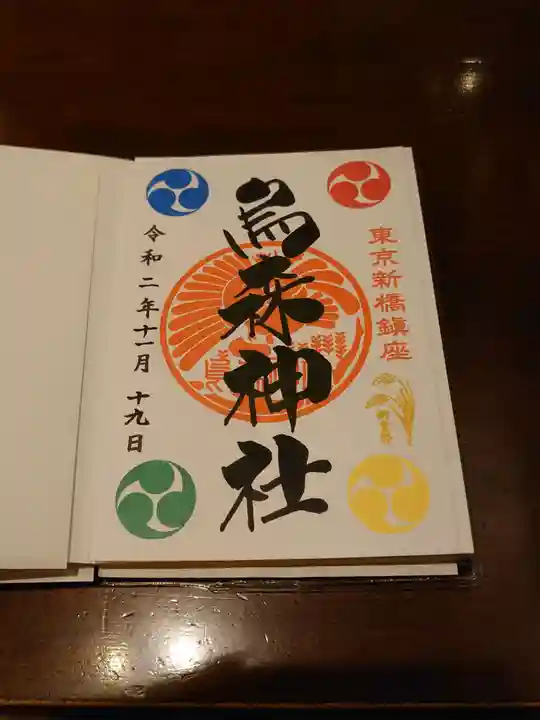 東京新橋鎮座
烏森神社
令和二年十一月十九日